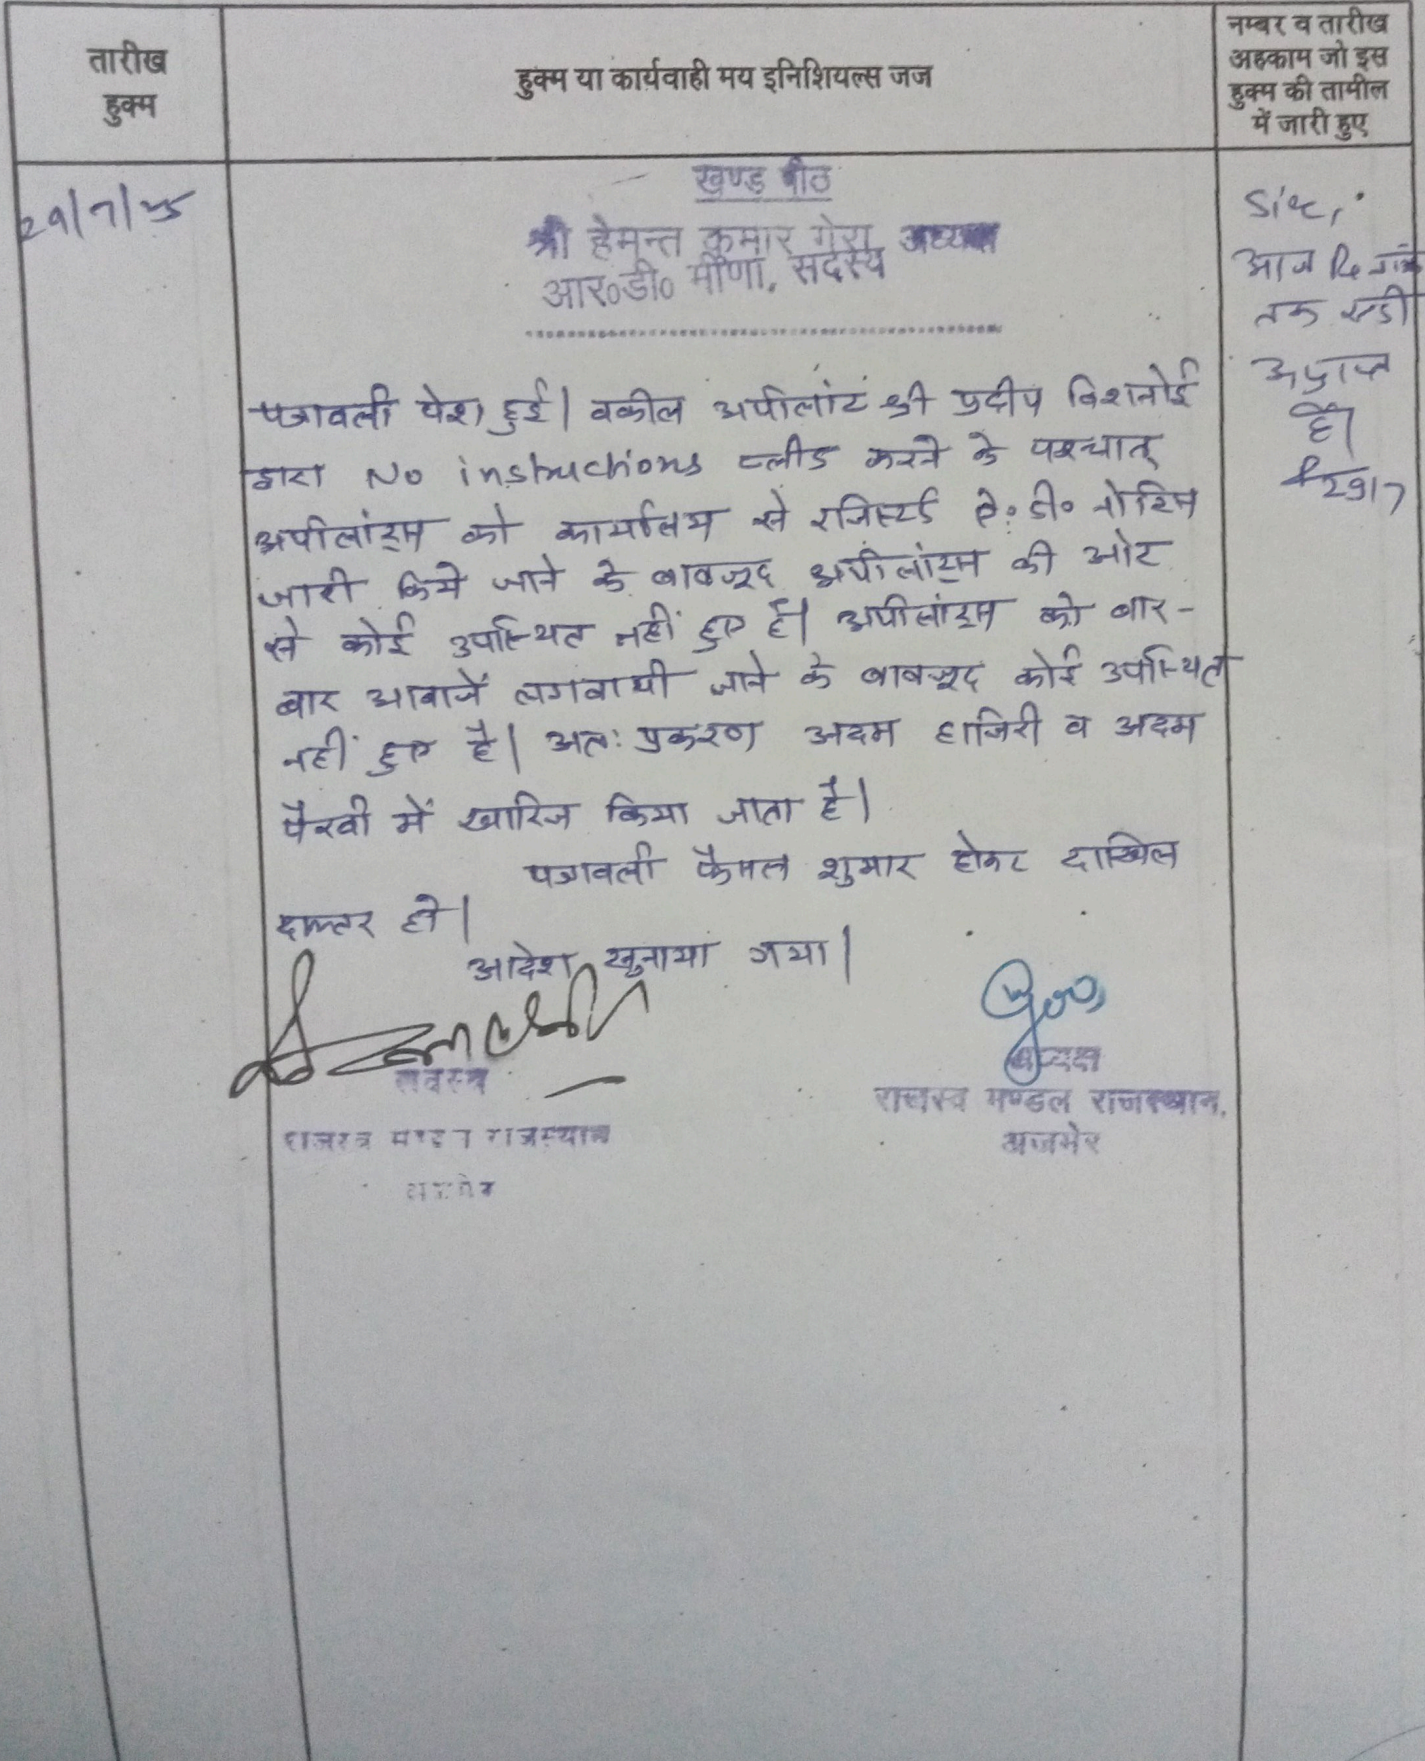 तारीख
हुक्म
हुक्म या कार्यवाही मय इनिशियल्स जज
नम्बर व तारीख
अहकाम जो इस
हुक्म की तामील
में जारी हुए
29/7/25
खण्ड पीठ
श्री हेमन्त कुमार गेरा, अध्यक्ष
आर०डी० मीणा, सदस्य
पत्रावली पेश हुई। वकील अपीलांट श्री प्रदीप विश्नोई
द्वारा No instructions प्लीड करने के पश्चात्
अपीलांट्स को कार्यालय से रजिस्टर्ड ए.डी. नोटिस
जारी किये जाने के बावजूद अपीलांट्स की ओर
से कोई उपस्थित नहीं हुए है। अपीलांट्स को बार-
बार आवाजें लगवायी जाने के बावजूद कोई उपस्थित
नहीं हुए है। अतः प्रकरण अदम हाजिरी व अदम
पैरवी में खारिज किया जाता है।
पत्रावली फैसल शुमार होकर दाखिल
दफ्तर हो।
आदेश सुनाया गया।
सदस्य
राजस्व मण्डल राजस्थान
अजमेर
अध्यक्ष
राजस्व मण्डल राजस्थान,
अजमेर
आज दिनांक
तक एडी
अप्राप्त
है।
29/7